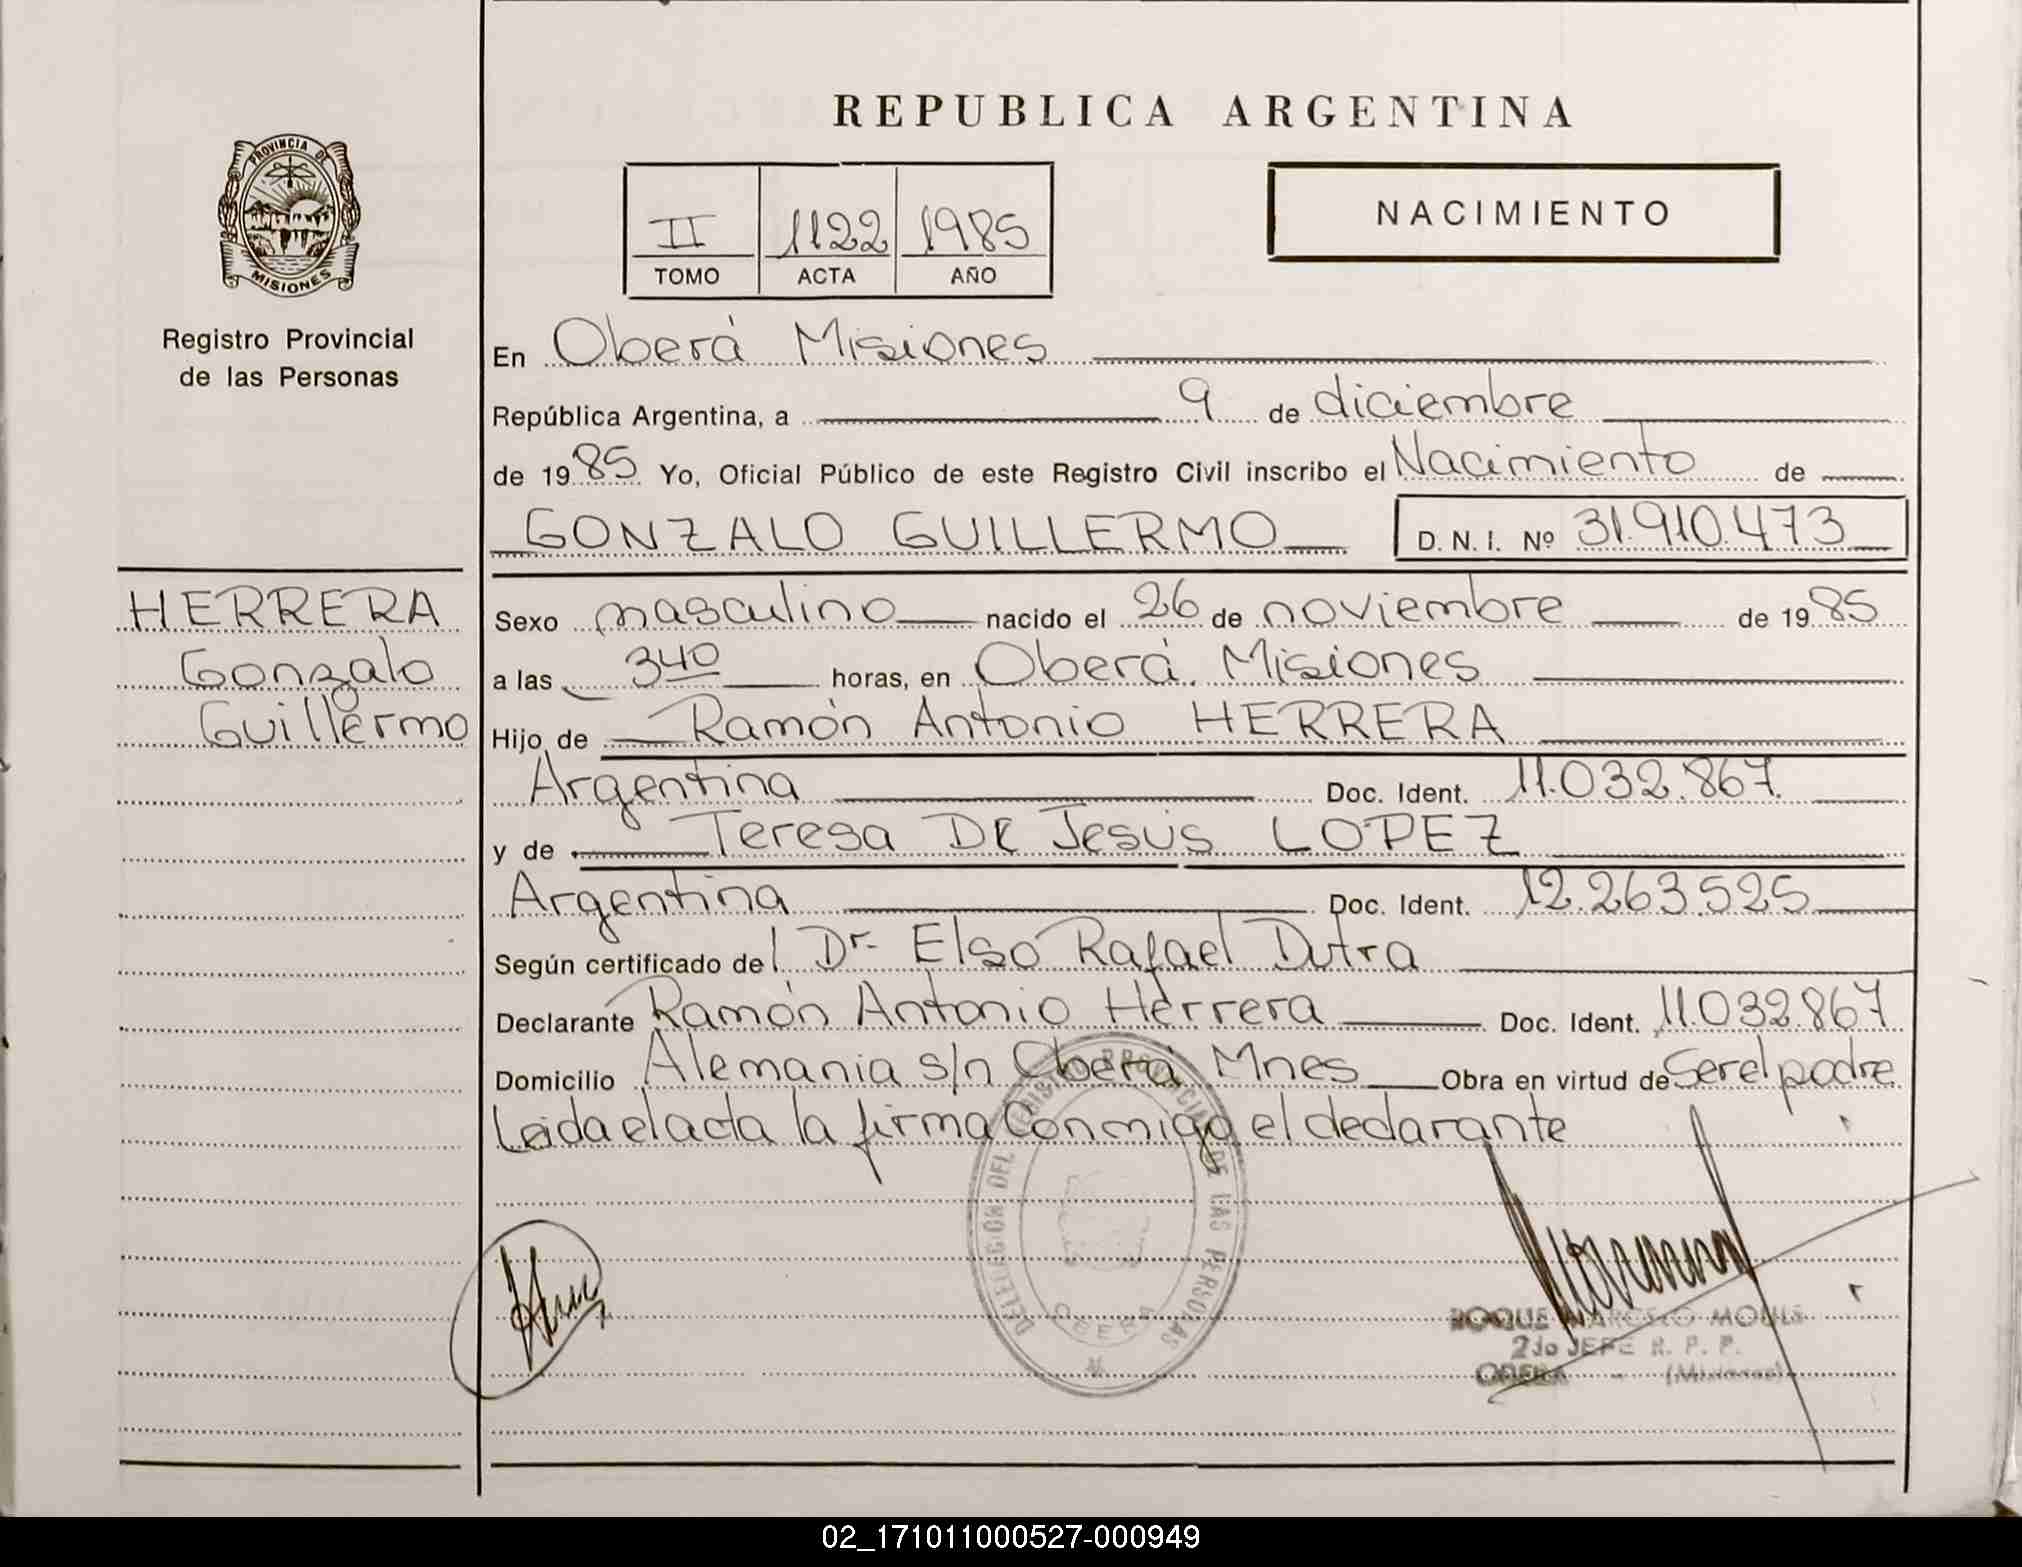 REPUBLICA ARGENTINA
PROVINCIA DE
MISIONES
Registro Provincial
de las Personas
II 1122 1985
TOMO ACTA AÑO
NACIMIENTO
En Oberá Misiones
República Argentina, a 9 de diciembre
de 1985 Yo, Oficial Público de este Registro Civil inscribo el Nacimiento de
GONZALO GUILLERMO D.N.I. Nº 31.910.473
HERRERA
Gonzalo
Guillermo
Sexo masculino nacido el 26 de noviembre de 1985
a las 340 horas, en Oberá. Misiones
Hijo de Ramón Antonio HERRERA
Argentina Doc. Ident. 11.032.867.
y de Teresa De Jesús LOPEZ
Argentina Doc. Ident. 12.263.525
Según certificado del Dr. Elso Rafael Dutra
Declarante Ramón Antonio Herrera Doc. Ident. 11.032.867
Domicilio Alemania s/n Oberá Mnes Obra en virtud de Ser el padre
Leida el acta la firma Conmigo el declarante
DELEGACION DEL REGISTRO PROVINCIAL DE LAS PERSONAS
OBERA
ROQUE MARCELO
2do JEFE R. P. P.
OBERA - (Misiones)
02_171011000527-000949